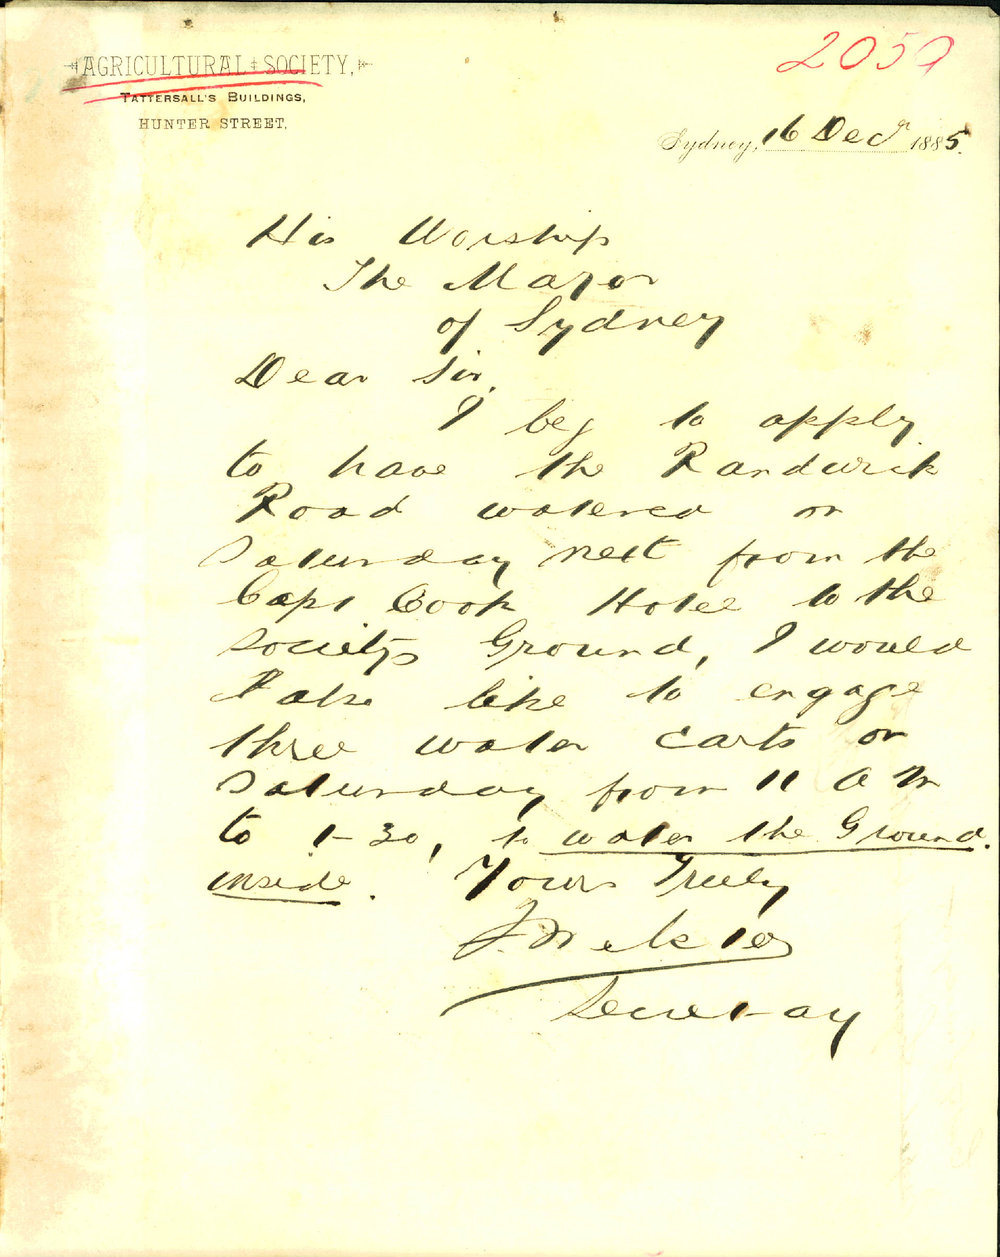 2059
AGRICULTURAL SOCIETY,
TATTERSALL'S BUILDINGS,
HUNTER STREET,
Sydney, 16 Decr 1885.
His Worship
The Mayor
of Sydney
Dear Sir,
I beg to apply
to have the Randwick
Road watered on
Saturday next from the
Capt Cook Hotel to the
Societys Ground, I would
also like to engage
three water carts on
Saturday from 11 a m
to 1-30, to water the Ground
inside. Yours Truly
Secretary